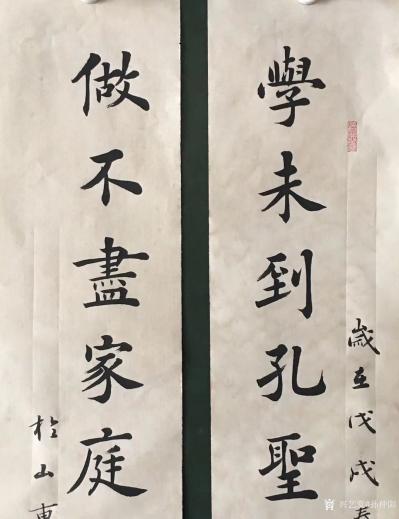 歲在戊戌春
學未到孔聖
做不盡家庭
於山東